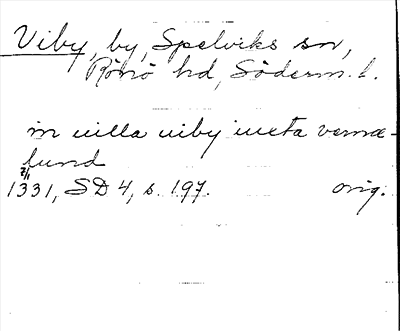 Viby, by, Spelviks sn,
Rönö hd, Söderm. l.
in uilla uiby iuxta vemæ-
fund
2/1
1331, SD 4, s. 197. orig.